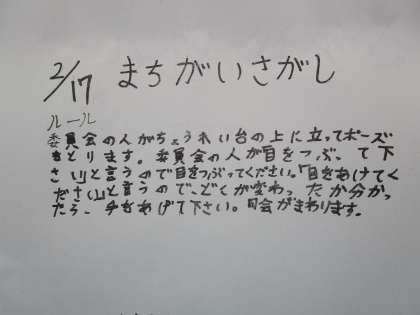 2/17 まちがいさがし
ルール
委員会の人がちょうれい台の上に立ってポーズ
をとります。委員会の人が「目をつぶって下
さい」と言うので目をつぶってください。「目をあけてく
ださい」と言うので、どこが変わったか分かっ
たら、手をあげて下さい。司会がまわります。